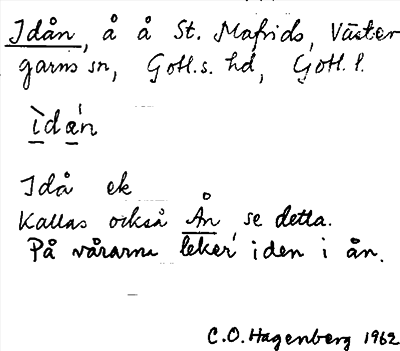 Idån, å å St. Mafrids, Väster
garns sn, Gotl.s. hd, Gotl. l.
ìdá̀n
Idå ek
Kallas också Ån, se detta.
På vårarna leker iden i ån.
C.O. Hagenberg 1962